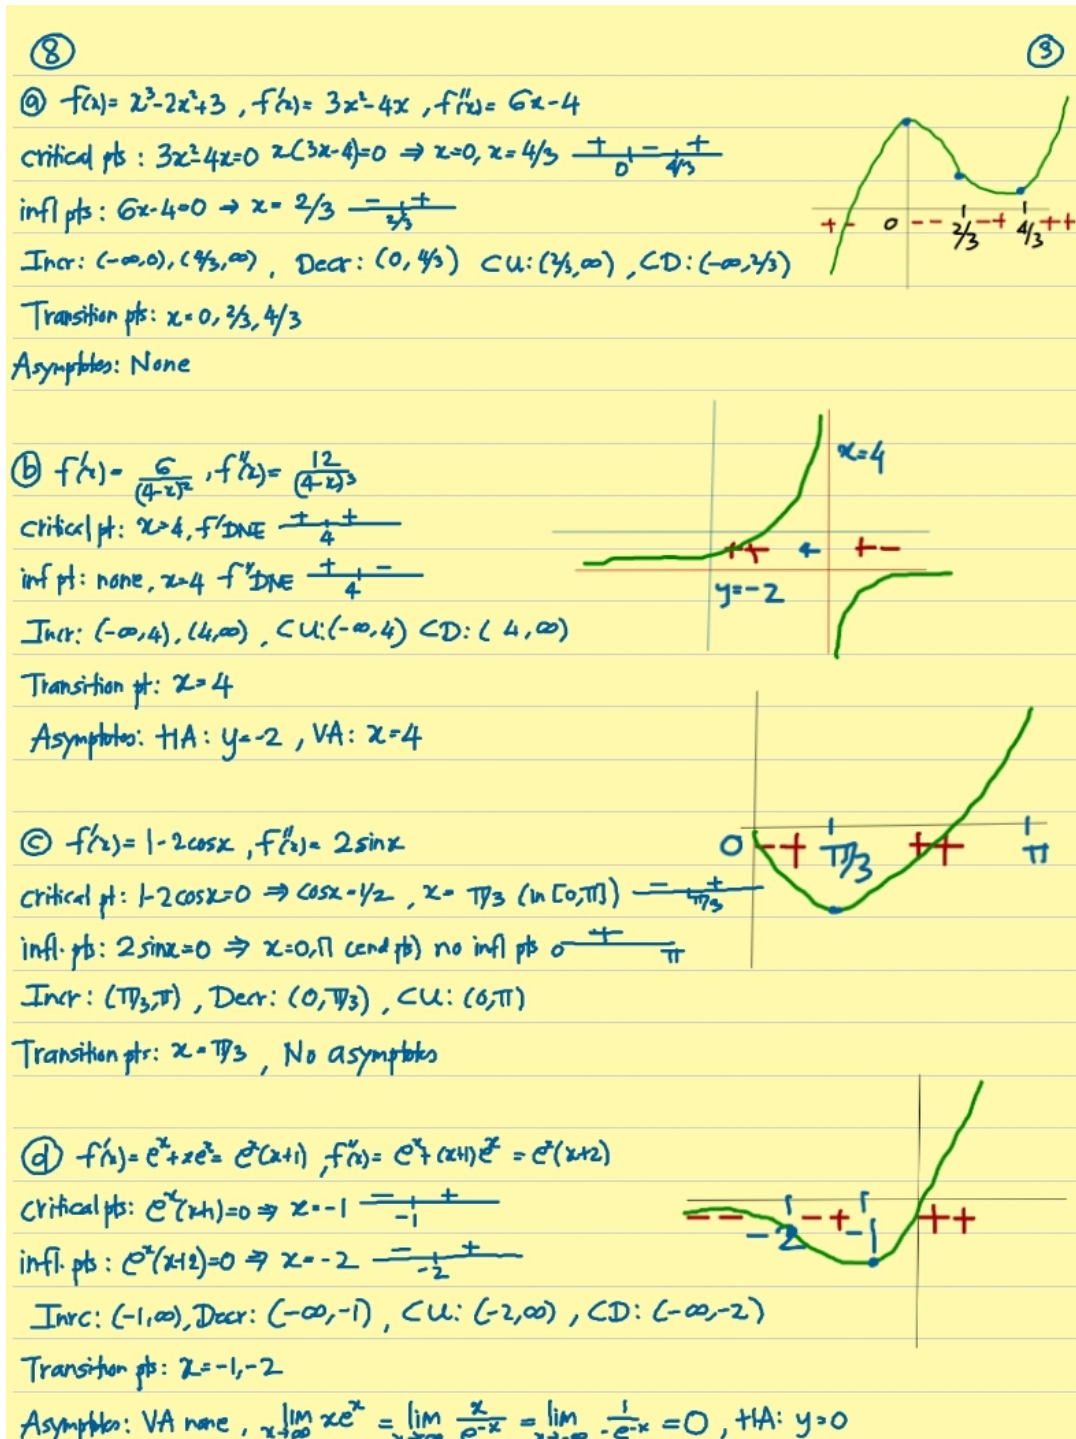 8
3
ⓐ f(x)= x³-2x²+3 , f'(x)= 3x²-4x , f''(x)= 6x-4
critical pts : 3x²-4x=0 x(3x-4)=0 ⇒ x=0, x=4/3 + 0 - 4/3 +
infl pts : 6x-4=0 → x= 2/3 - 2/3 +
Incr: (-∞,0), (4/3,∞) , Decr: (0, 4/3) CU: (2/3,∞) , CD: (-∞,2/3)
+ - 0 - - 2/3 - + 4/3 + +
Transition pts: x=0, 2/3, 4/3
Asymptotes: None
ⓑ f'(x)= 6/(4-x)² , f''(x)= 12/(4-x)³
x=4
critical pt: x=4, f' DNE + 4 +
inf pt: none, x=4 f'' DNE + 4 -
+ + 4 + -
y=-2
Incr: (-∞,4), (4,∞) , CU:(-∞,4) CD: (4,∞)
Transition pt: x=4
Asymptotes: HA: y=-2 , VA: x=4
ⓒ f'(x)= 1-2cosx , f''(x)= 2sinx
0 - + π/3 + + π
critical pt: 1-2cosx=0 ⇒ cosx=1/2 , x= π/3 (in [0,π]) - π/3 +
infl. pts: 2sinx=0 ⇒ x=0,π (end pts) no infl pts 0 + π
Incr: (π/3,π) , Decr: (0,π/3) , CU: (0,π)
Transition pts: x=π/3 , No asymptotes
ⓓ f'(x)= eˣ+xeˣ= eˣ(x+1) , f''(x)= eˣ+(x+1)eˣ = eˣ(x+2)
critical pts: eˣ(x+1)=0 ⇒ x=-1 - -1 +
- - -2 - + -1 + +
infl. pts : eˣ(x+2)=0 ⇒ x=-2 - -2 +
Inrc: (-1,∞), Decr: (-∞,-1) , CU: (-2,∞) , CD: (-∞,-2)
Transition pts: x=-1,-2
Asymptotes: VA none , lim xeˣ = lim x/e⁻ˣ = lim 1/-e⁻ˣ = 0 , HA: y=0